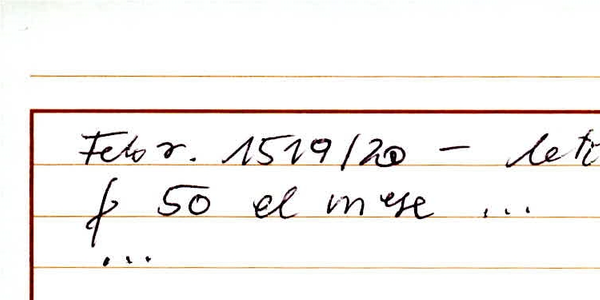 Febr. 1519/20 – lett
ƒ 50 el mese ...
...